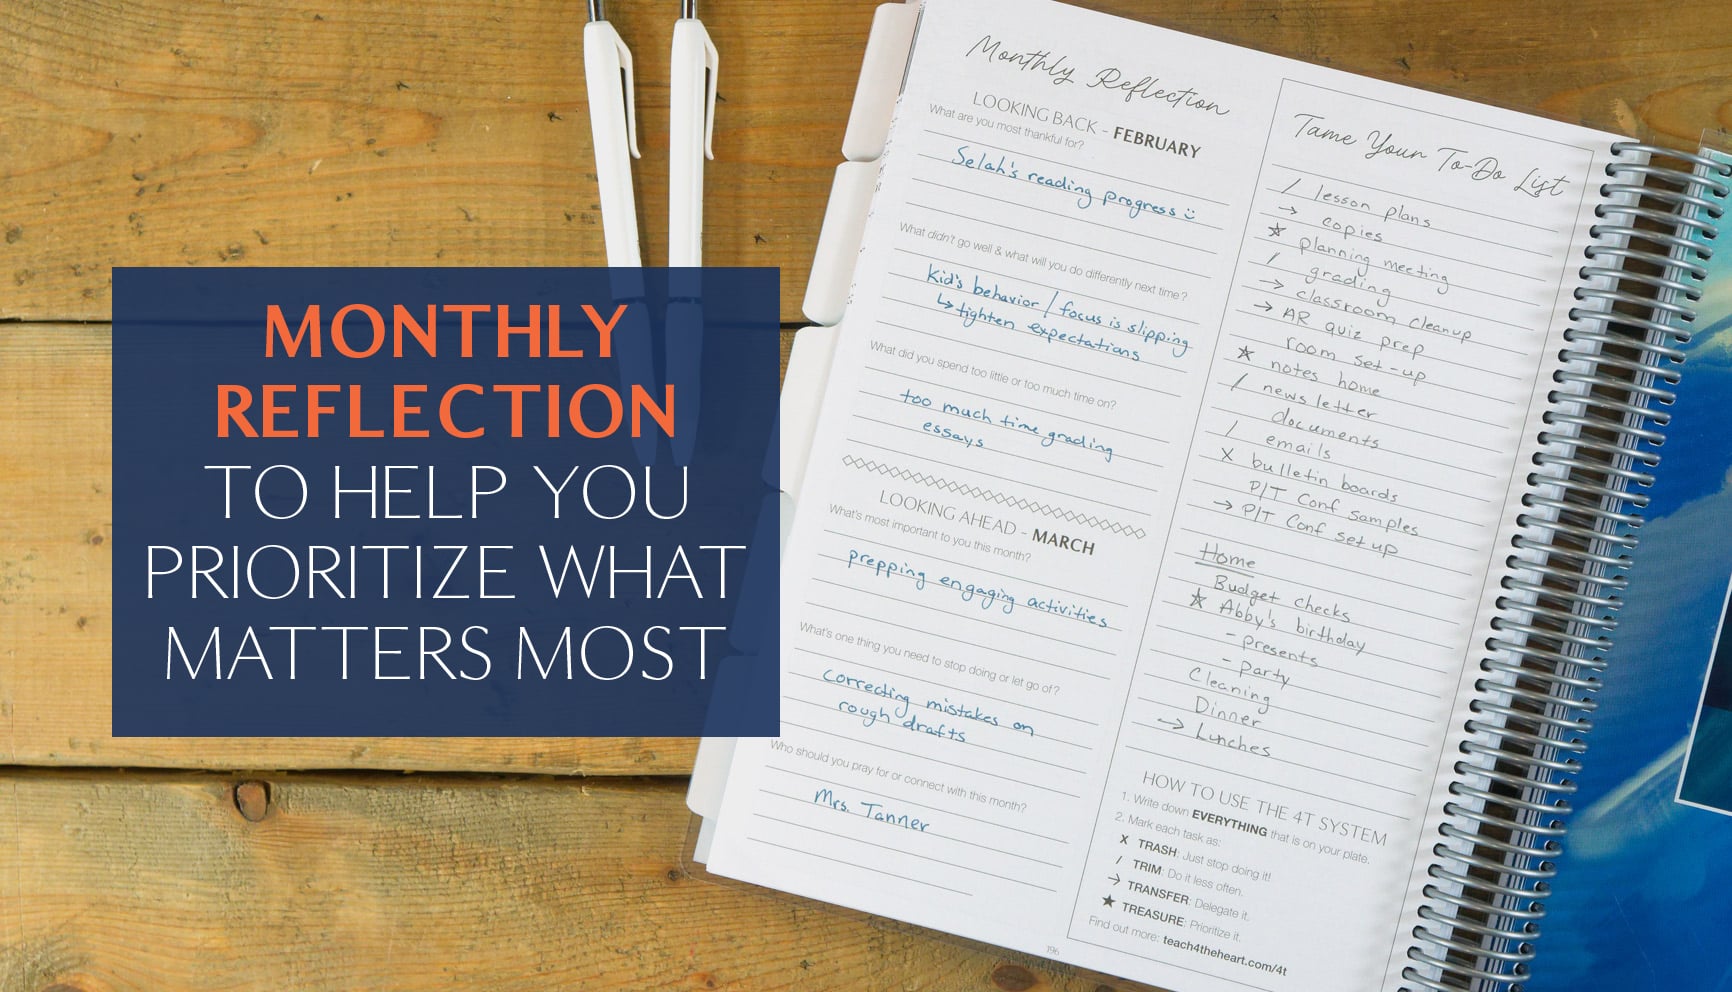 MONTHLY
REFLECTION
TO HELP YOU
PRIORITIZE WHAT
MATTERS MOST
Monthly Reflection
LOOKING BACK - FEBRUARY
What are you most thankful for?
Selah's reading progress :)
What didn't go well & what will you do differently next time?
kid's behavior / focus is slipping
↳ tighten expectations
What did you spend too little or too much time on?
too much time grading
essays
LOOKING AHEAD - MARCH
What's most important to you this month?
prepping engaging activities
What's one thing you need to stop doing or let go of?
correcting mistakes on
rough drafts
Who should you pray for or connect with this month?
Mrs. Tanner
196
Tame Your To-Do List
/ lesson plans
→ copies
★ planning meeting
/ grading
→ classroom cleanup
→ AR quiz prep
room set-up
★ notes home
/ newsletter
documents
/ emails
X bulletin boards
P/T Conf samples
→ P/T Conf set up
Home
Budget checks
★ Abby's birthday
- presents
- party
Cleaning
Dinner
→ Lunches
HOW TO USE THE 4T SYSTEM
1. Write down EVERYTHING that is on your plate.
2. Mark each task as:
X TRASH: Just stop doing it!
/ TRIM: Do it less often.
→ TRANSFER: Delegate it.
★ TREASURE: Prioritize it.
Find out more: teach4theheart.com/4t